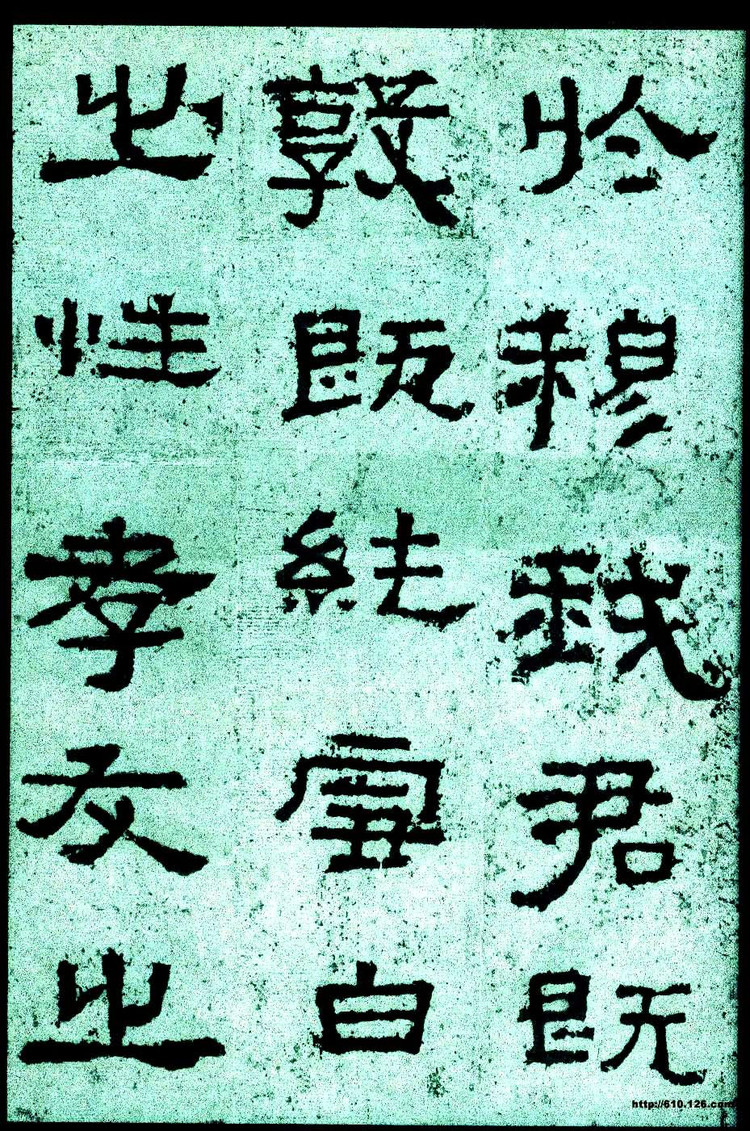 於穆我君既
敦既純雪白
之性孝友之
http://610.126.com